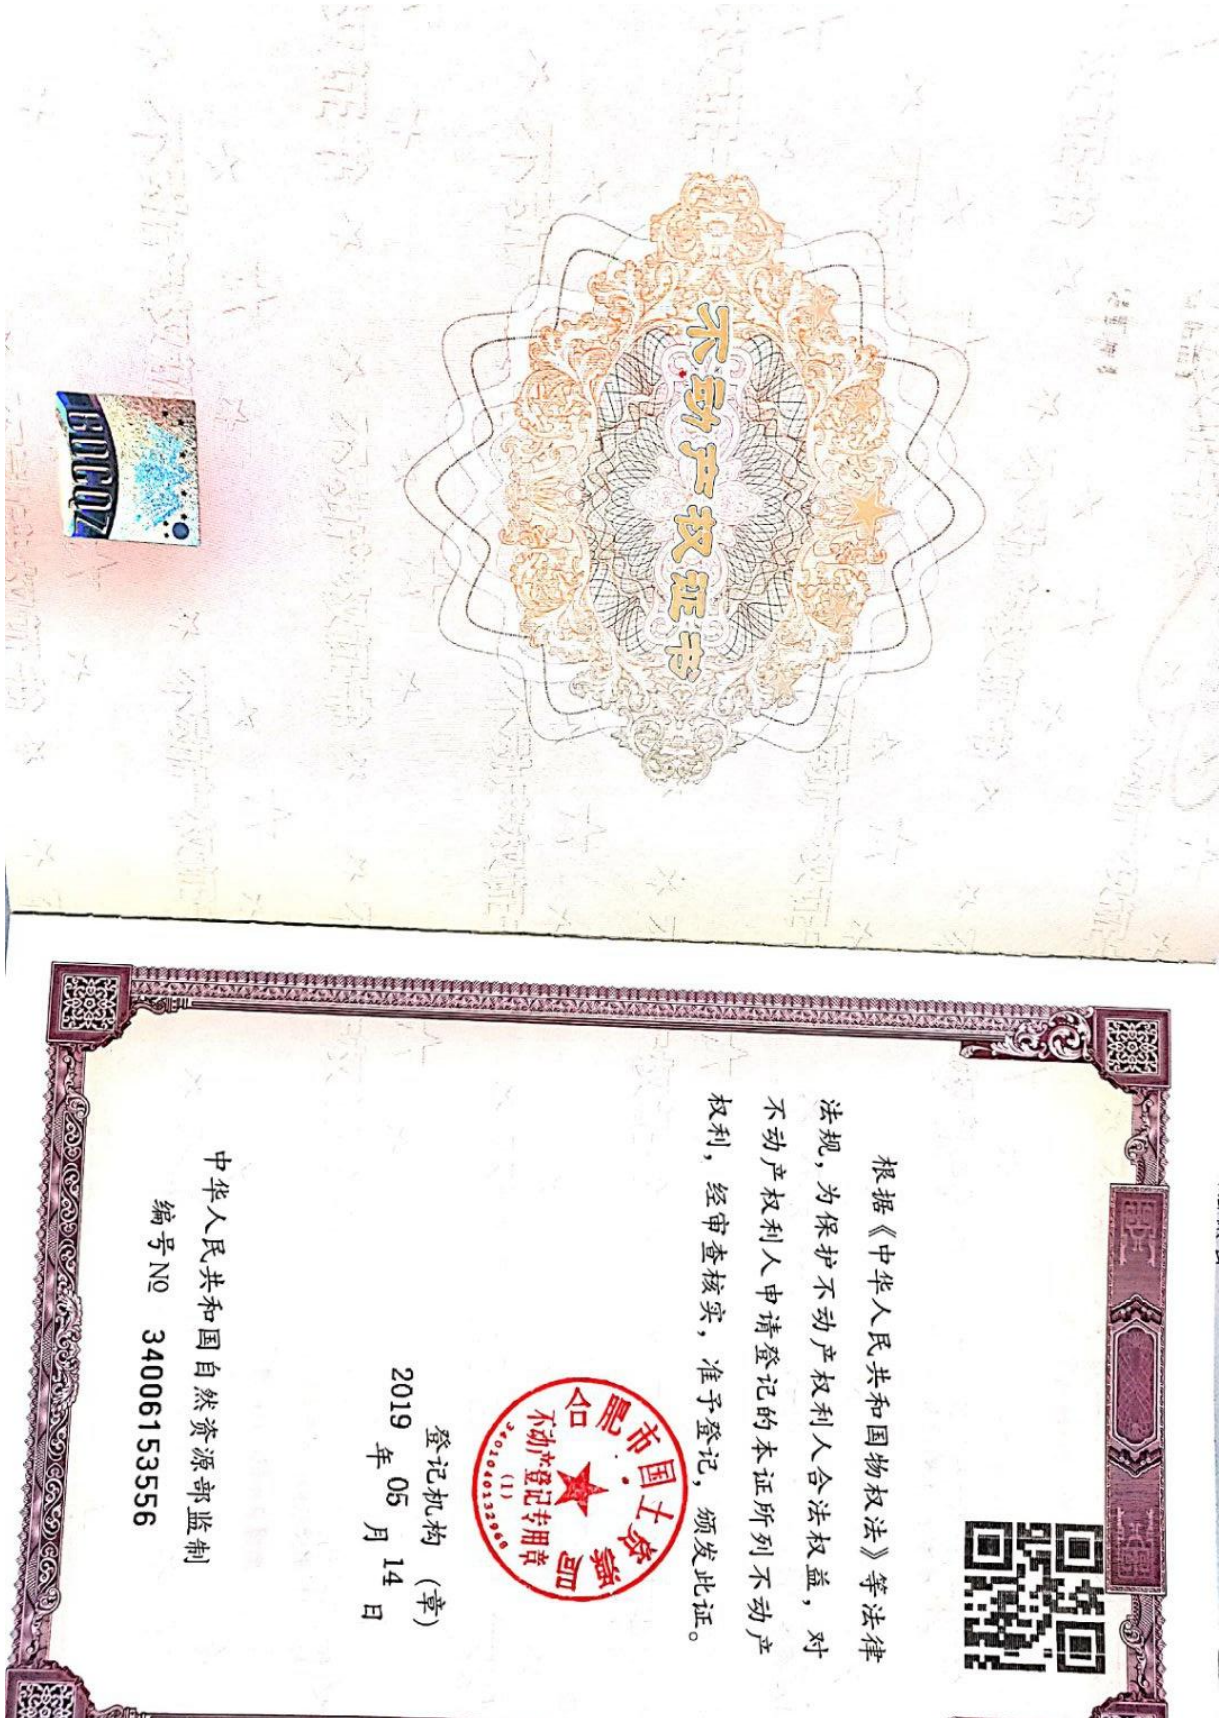 不动产权证书
BDCQZ
根据《中华人民共和国物权法》等法律
法规，为保护不动产权利人合法权益，对
不动产权利人申请登记的本证所列不动产
权利，经审查核实，准予登记，颁发此证。
合肥市国土资源局
不动产登记专用章
(1)
3401040132968
登记机构（章）
2019 年 05 月 14 日
中华人民共和国自然资源部监制
编号№ 34006153556